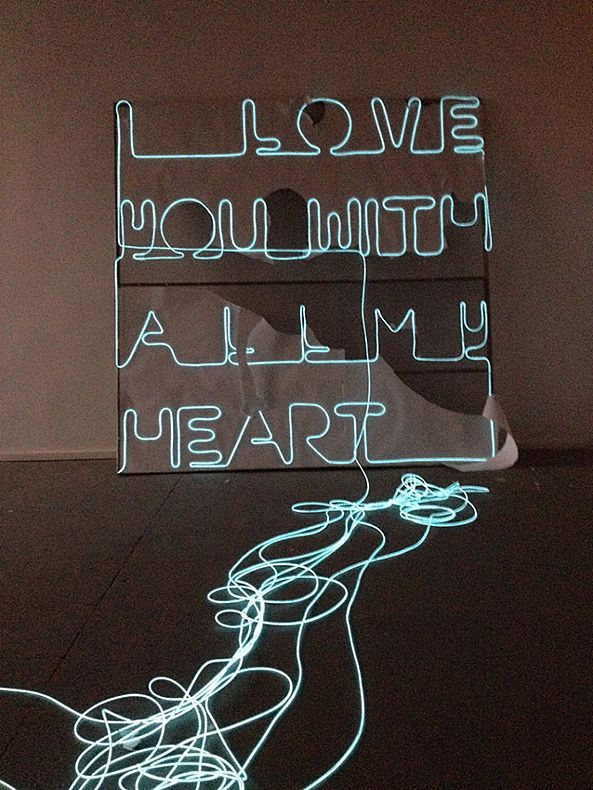 I LOVE
YOU WITH
ALL MY
HEART